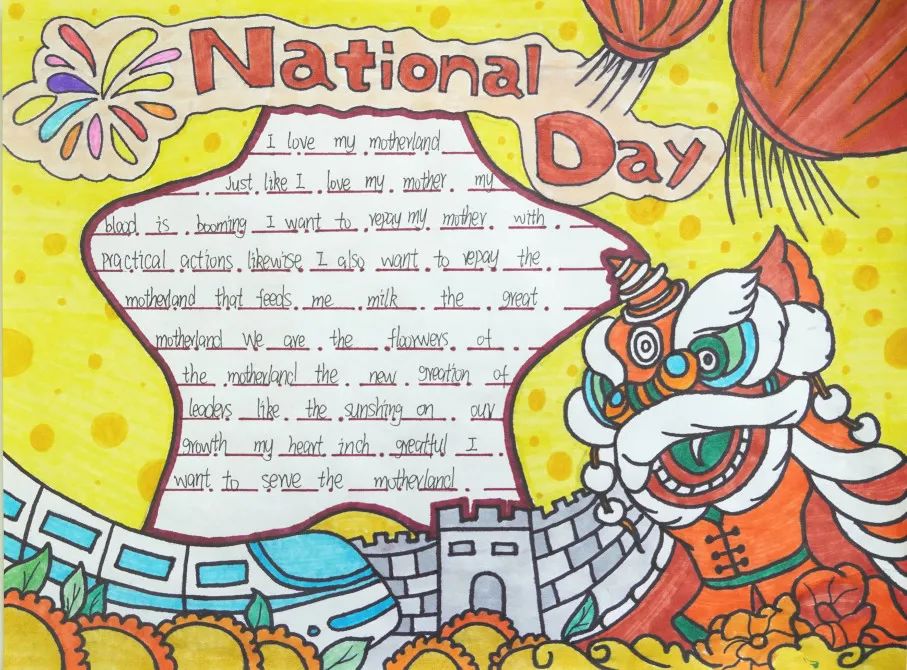 National
Day
I love my motherland
Just like I love my mother my
blood is booming I want to repay my mother with
practical actions likewise I also want to repay the
motherland that feeds me milk the great
motherland We are the floorwers of
the motherland the new greation of
leaders like the sunshing on our
growth my heart inch greatful I
want to serve the motherland